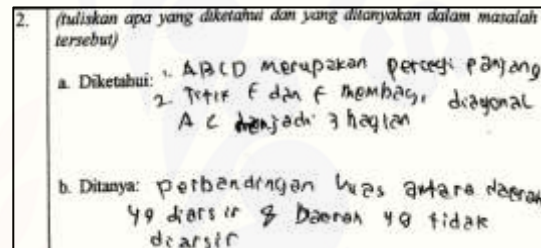 2. (tuliskan apa yang diketahui dan yang ditanyakan dalam masalah
tersebut)
a. Diketahui: 1. ABCD merupakan persegi panjang
2. Titik E dan F membagi diagonal
AC menjadi 3 bagian
b. Ditanya: perbandingan luas antara daerah
yg diarsir & Daerah yg tidak
diarsir